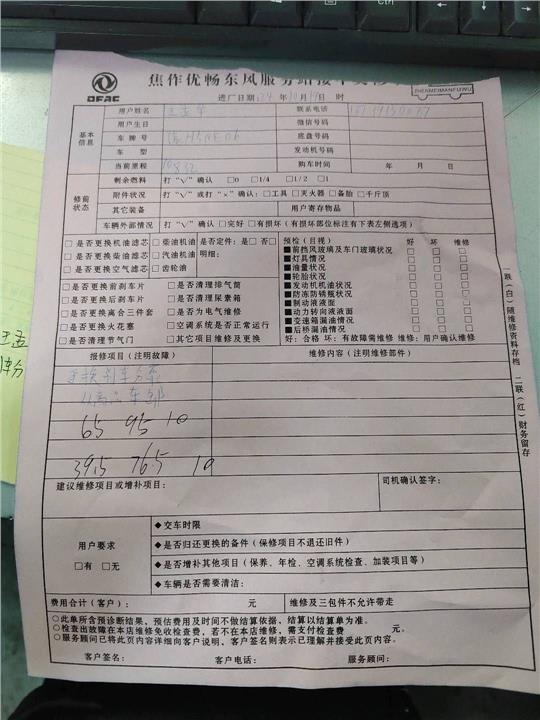 DFAC
焦作优畅东风服务站接车
ZHENMEIMANFUWU
进厂日期:24 年 10月 19日 时
基本信息
用户姓名 联系电话
用户生日 微信号码
车牌号 底盘号码
车型 发动机号码
当前里程 10832 购车时间 年 月 日
修前状态
剩余燃料 打"√"确认 □0 □1/4 □1/2 □1
附件状况 打"√"或打"×"确认:□工具 □灭火器 □备胎 □千斤顶
其它装备 用户寄存物品
车辆外部情况 打"√"确认 □完好 □有损坏(有损坏部位标注有下表左侧选项)
□是否更换机油滤芯 □柴油机油 是否定件:是□否□
□是否更换柴油滤芯 □汽油机油 明细:
□是否更换空气滤芯 □齿轮油
□是否更换前刹车片 □是否清理排气筒
□是否更换后刹车片 □是否清理尿素箱
□是否更换离合三件套 □是否为电气维修
□是否更换火花塞 □空调系统是否正常运行
□是否清理节气门 □其它项目维修及更换
预检(目视) 好 坏 维修
■前挡风玻璃及车门玻璃状况 □ □ □
■灯具情况 □ □ □
■油量状况 □ □ □
■轮胎状况 □ □ □
■发动机机油状况 □ □ □
■防冻防锈瓶状况 □ □ □
■制动液液面 □ □ □
■动力转向液液面 □ □ □
■变速箱漏油情况 □ □ □
■后桥漏油情况 □ □ □
好:合格 坏:有故障需维修 维修:用户确认维修
报修项目(注明故障) 维修内容(注明维修部件)
更换刹车分泵
65 95 10
395 765 10
建议维修项目或增补项目: 司机确认签字:
用户要求
□有 □无
◆交车时限
◆是否归还更换的备件(保修项目不退还旧件)
◆是否增补其他项目(保养、年检、空调系统检查、加装项目等)
◆车辆是否需要清洁:
费用合计(客户): 元 维修及三包件不允许带走
○此单所含预诊断结果,预估费用及时间不做结算依据,结算以结算单为准。
○检查出故障在本店维修免收检查费,若不在本店维修,需支付检查费 元。
○服务顾问已将此页内容详细向客户说明、客户签名则表示已理解并接受此页内容。
客户签名: 客户电话: 服务顾问:
一联(白)随维修资料存档 二联(红)财务留存